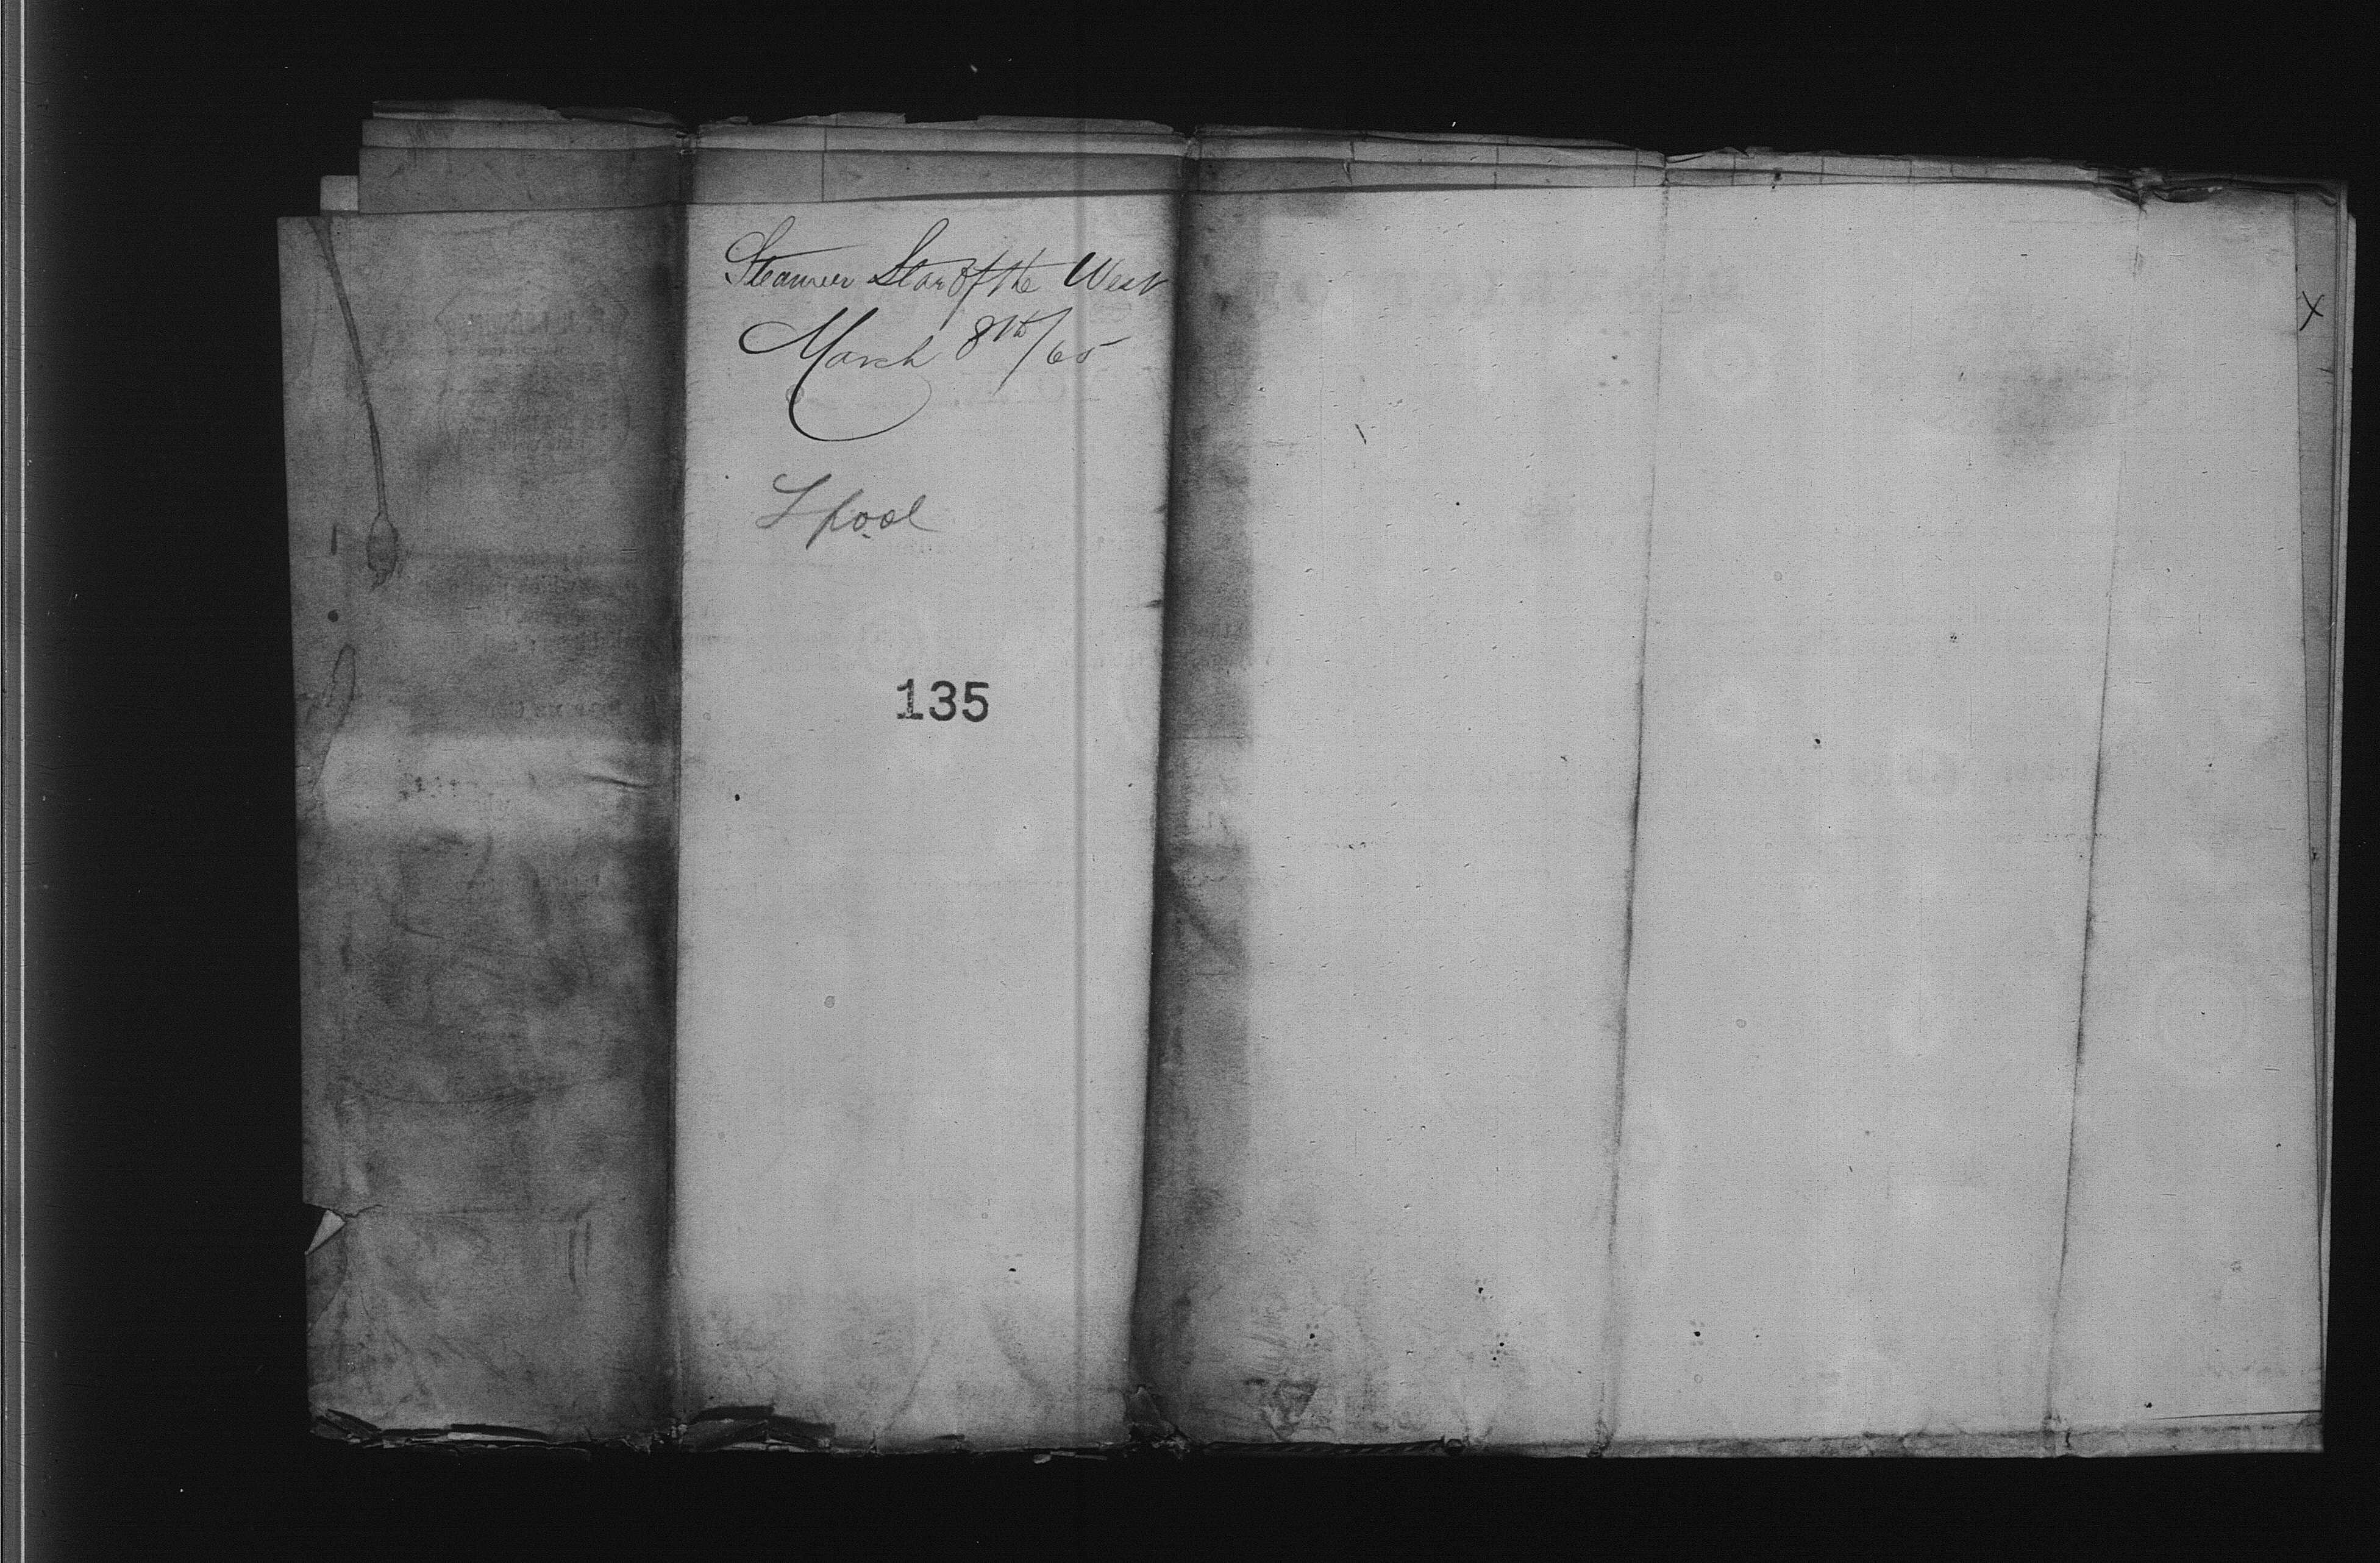 Steamer Star of the West
March 8th/65
Lpool
135
X